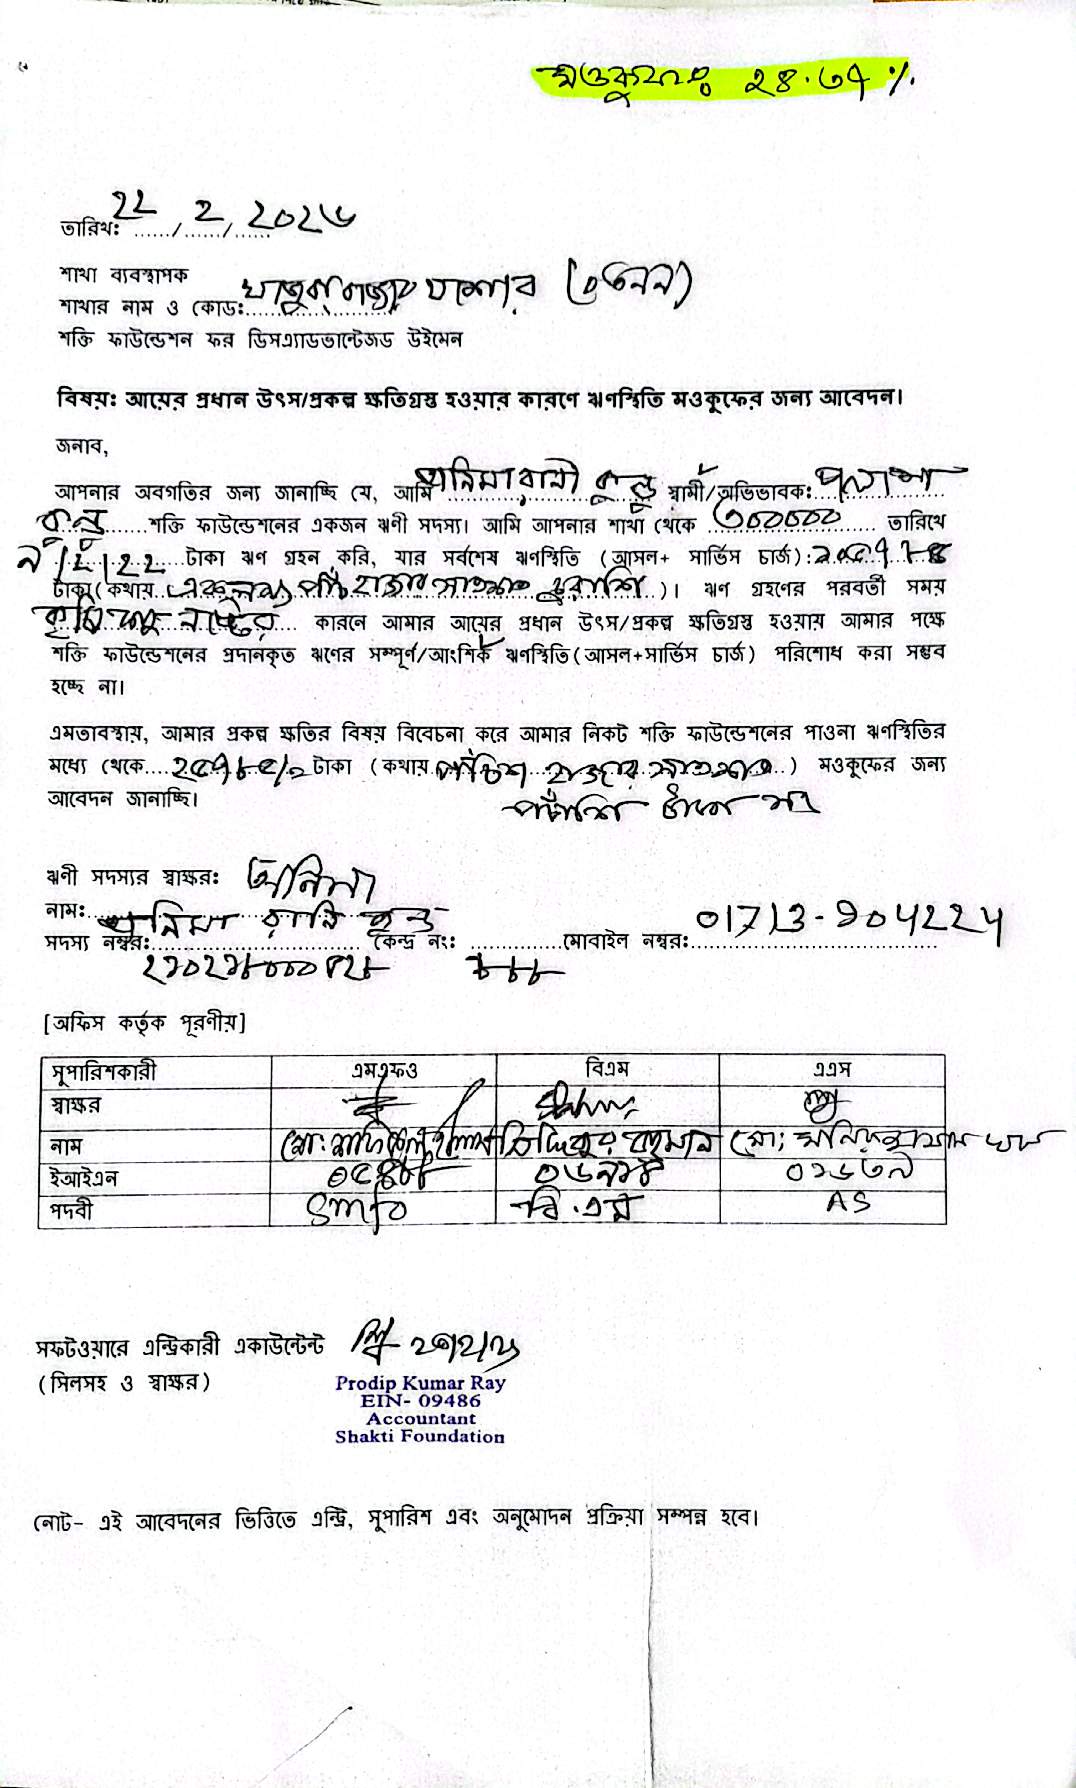 মওকুফের ২৪.৩৭ %
তারিখ: 22/2/202৬
শাখা ব্যবস্থাপক
শাখার নাম ও কোড: যশোর
শক্তি ফাউন্ডেশন ফর ডিসএ্যাডভান্টেজড উইমেন
বিষয়ঃ আয়ের প্রধান উৎস/প্রকল্প ক্ষতিগ্রস্ত হওয়ার কারণে ঋণস্থিতি মওকুফের জন্য আবেদন।
জনাব,
আপনার অবগতির জন্য জানাচ্ছি যে, আমি অনিমা রানী কুন্ডু স্বামী/অভিভাবক: পলাশ
কুন্ডু শক্তি ফাউন্ডেশনের একজন ঋণী সদস্য। আমি আপনার শাখা থেকে ৩০০০০০ তারিখে
টাকা ঋণ গ্রহন করি, যার সর্বশেষ ঋণস্থিতি (আসল+ সার্ভিস চার্জ):
টাকা(কথায় একলক্ষ পাঁচ হাজার সাতশত চুরাশি)। ঋণ গ্রহণের পরবর্তী সময়
কারনে আমার আয়ের প্রধান উৎস/প্রকল্প ক্ষতিগ্রস্ত হওয়ায় আমার পক্ষে
শক্তি ফাউন্ডেশনের প্রদানকৃত ঋণের সম্পূর্ণ/আংশিক ঋণস্থিতি(আসল+সার্ভিস চার্জ) পরিশোধ করা সম্ভব
হচ্ছে না।
এমতাবস্থায়, আমার প্রকল্প ক্ষতির বিষয় বিবেচনা করে আমার নিকট শক্তি ফাউন্ডেশনের পাওনা ঋণস্থিতির
মধ্যে থেকে ২৫৭৮৫/= টাকা (কথায় পঁচিশ হাজার সাতশত) মওকুফের জন্য
পঁচাশি টাকা মাত্র
আবেদন জানাচ্ছি।
ঋণী সদস্যর স্বাক্ষর: অনিমা
নাম: অনিমা রানি কুন্ডু
সদস্য নম্বর: কেন্দ্র নং: মোবাইল নম্বর: 01713-904224
[অফিস কর্তৃক পূরণীয়]
সুপারিশকারী এমএফও বিএম এএস
স্বাক্ষর
নাম মো: সিদ্দিকুর রহমান মো:
ইআইএন
পদবী SMFO বি.এম AS
সফটওয়ারে এন্ট্রিকারী একাউন্টেন্ট
(সিলসহ ও স্বাক্ষর)
Prodip Kumar Ray
EIN- 09486
Accountant
Shakti Foundation
নোট- এই আবেদনের ভিত্তিতে এন্ট্রি, সুপারিশ এবং অনুমোদন প্রক্রিয়া সম্পন্ন হবে।